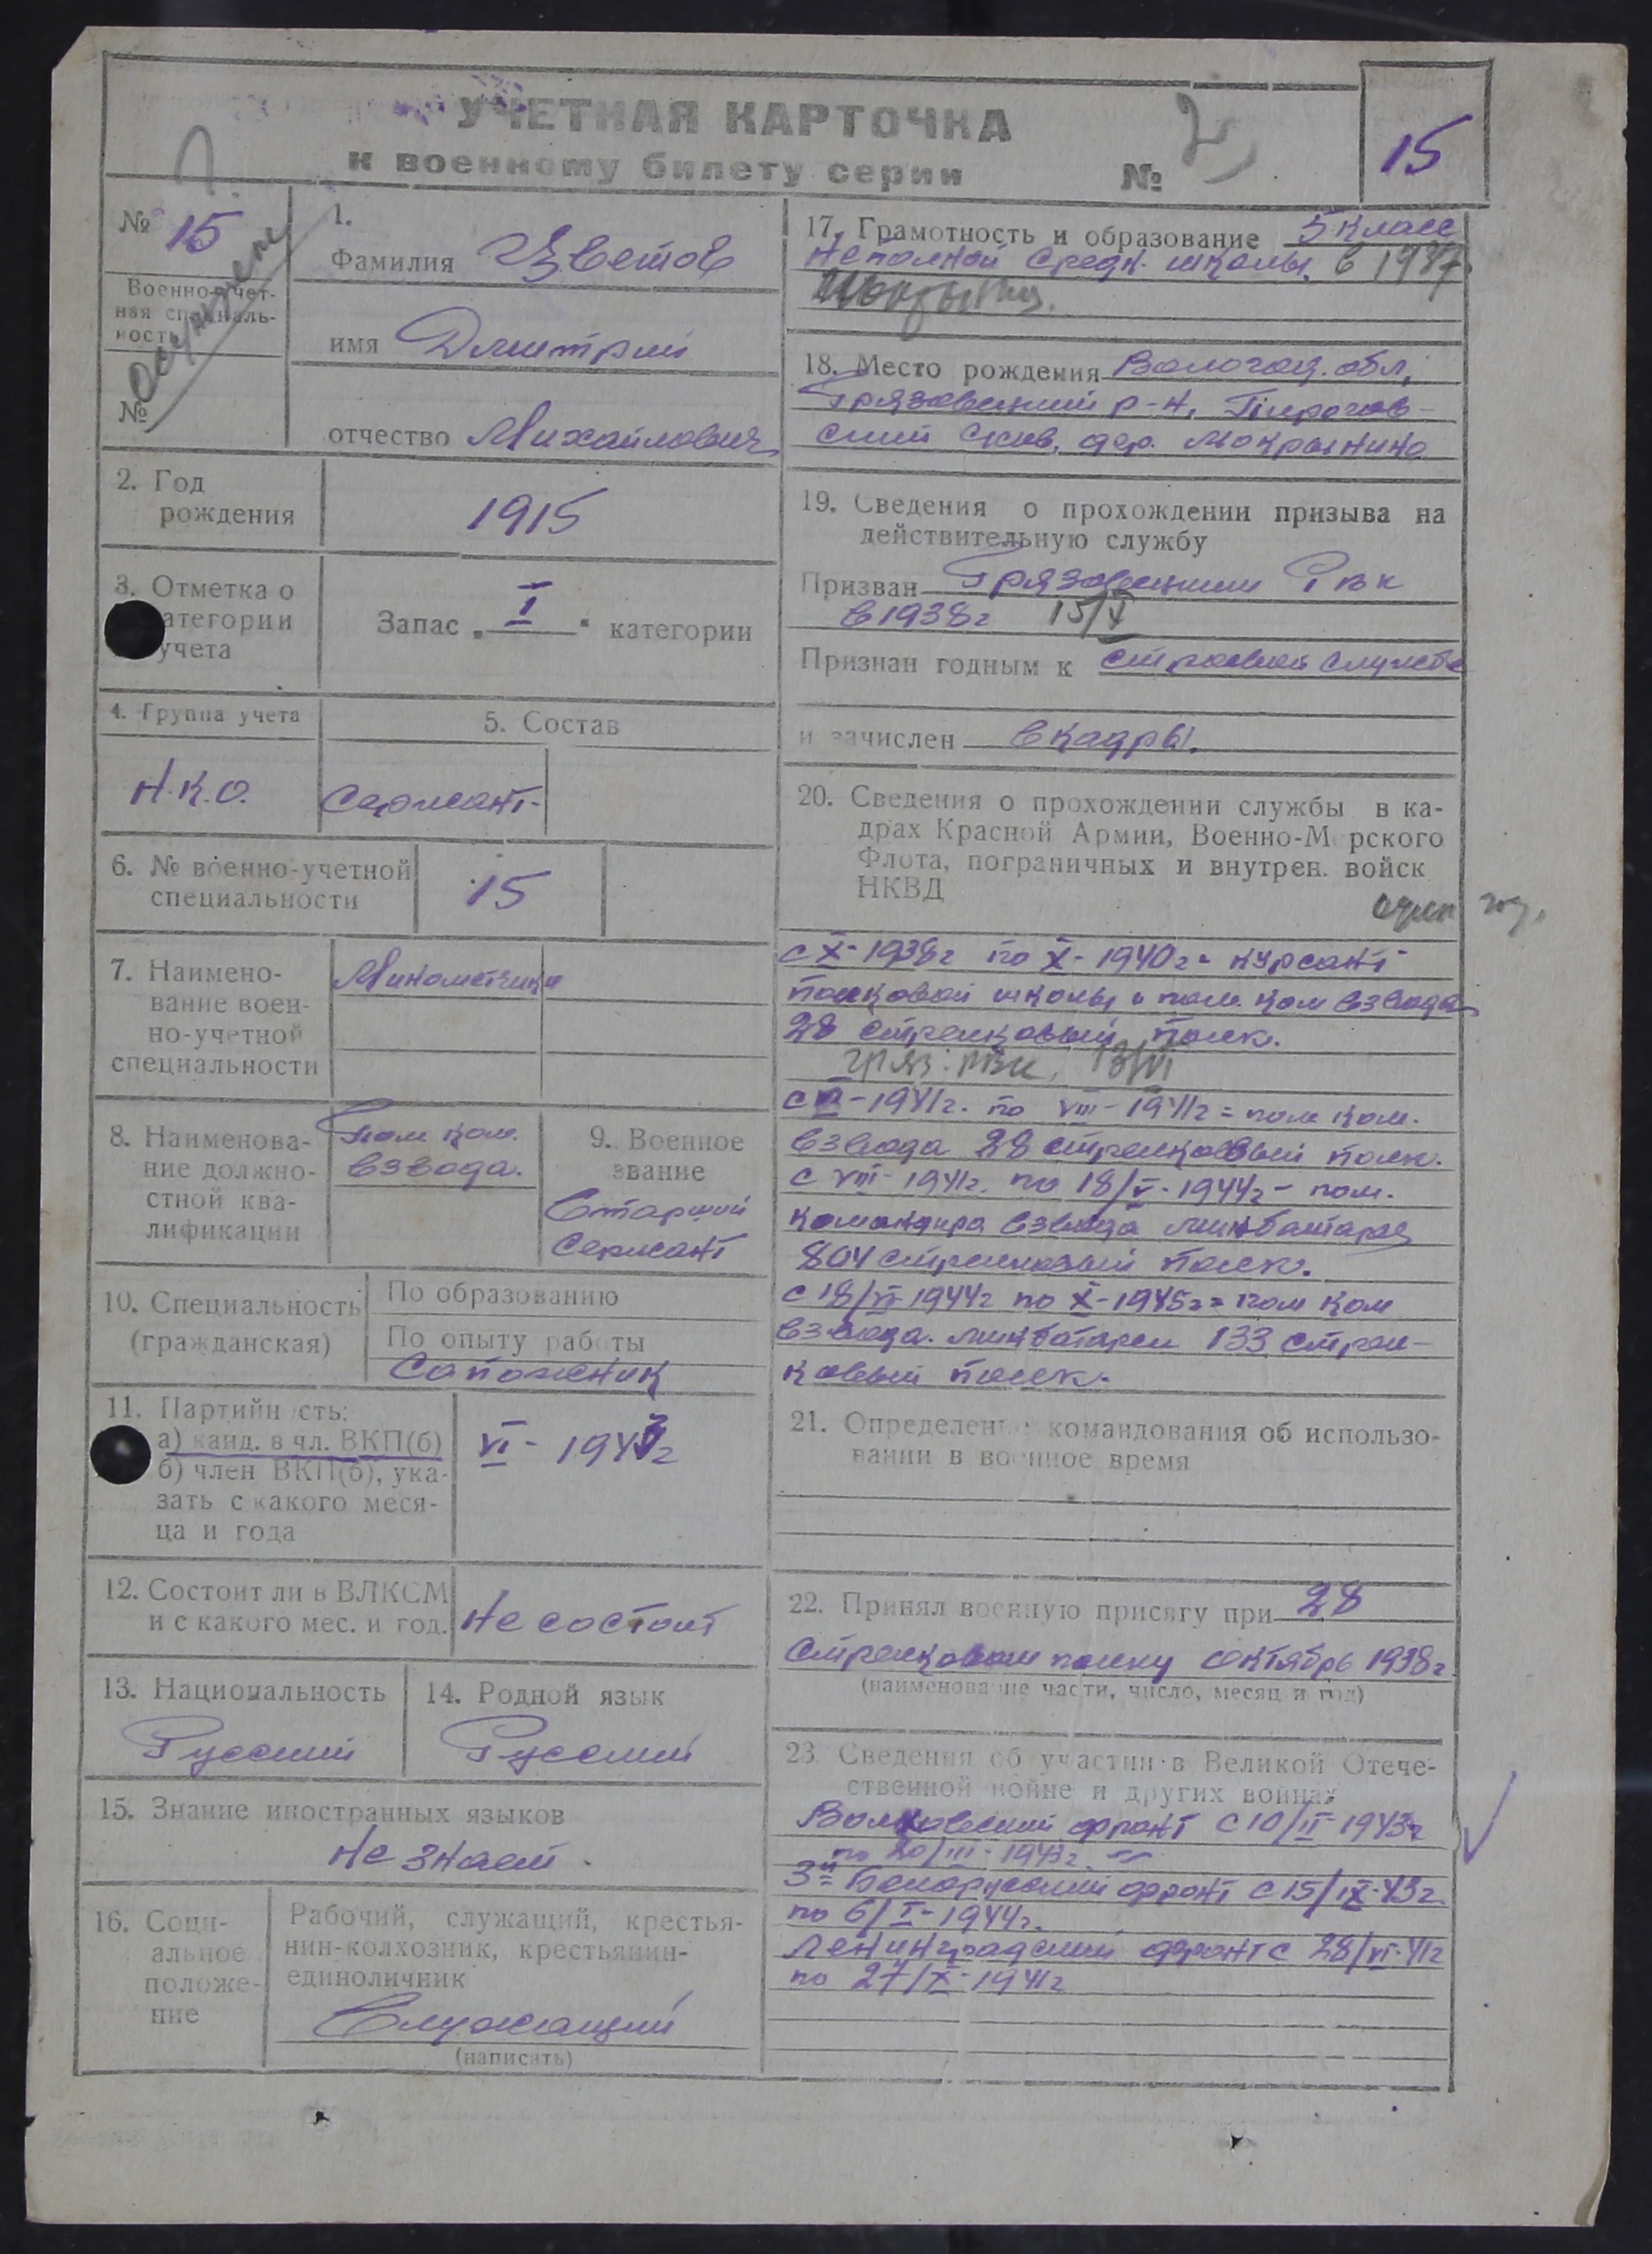 УЧЕТНАЯ КАРТОЧКА
к военному билету серии №
15
№ 15
Военно-учет-
ная специаль-
ность
№
осужден
1.
Фамилия Цветов
имя Дмитрий
отчество Михайлович
2. Год
рождения
1915
3. Отметка о
категории
учета
Запас „I“ категории
4. Группа учета
Н.К.О.
5. Состав
Сержант.
6. № военно-учетной
специальности
15
7. Наимено-
вание воен-
но-учетной
специальности
Минометчики
8. Наименова-
ние должно-
стной ква-
лификации
Пом. ком.
взвода.
9. Военное
звание
Старший
Сержант
10. Специальность
(гражданская)
По образованию
По опыту работы
Сапожник
11. Партийность:
а) канд. в чл. ВКП(б)
б) член ВКП(б), ука-
зать с какого меся-
ца и года
VI - 1943г
12. Состоит ли в ВЛКСМ
и с какого мес. и год.
Не состоит
13. Национальность
Русский
14. Родной язык
Русский
15. Знание иностранных языков
Не знает.
16. Соци-
альное
положе-
ние
Рабочий, служащий, крестья-
нин-колхозник, крестьянин-
единоличник
Служащий
(написать)
17. Грамотность и образование 5 класс
неполной средн. школы. в 1937
18. Место рождения Вологод. обл,
Грязовецкий р-н, Пирогов-
ский с/сов, дер. Мокрынино
19. Сведения о прохождении призыва на
действительную службу
Призван Грязовецким Рвк
в 1938г 15/X
Признан годным к строевой службе
и зачислен в кадры.
20. Сведения о прохождении службы в ка-
драх Красной Армии, Военно-Морского
Флота, пограничных и внутрен. войск
НКВД
один год.
с X-1938г по X-1940г - курсант
полковой школы и пом. ком взвода
28 стрелковый полк.
гряз. рвк. 13/VI
с VI-1941г. по VIII-1941г = пом ком.
взвода 28 стрелковый полк.
с VIII-1941г. по 18/V-1944г - пом.
командира взвода минбатареи
804 стрелковый полк.
с 18/VI 1944г по X-1945г = пом ком
взвода. минбатареи 133 стрел-
ковый полк.
21. Определение командования об использо-
вании в военное время
22. Принял военную присягу при 28
стрелковом полку октябрь 1938г
(наименование части, число, месяц и год)
23. Сведения об участии в Великой Отече-
ственной войне и других войнах
Волховский фронт с 10/II 1943г
по 20/III-1943г.
3й Белорусский фронт с 15/IX-43г.
по 6/I-1944г.
Ленинградский фронт с 28/VI-41г
по 27/X-1941г